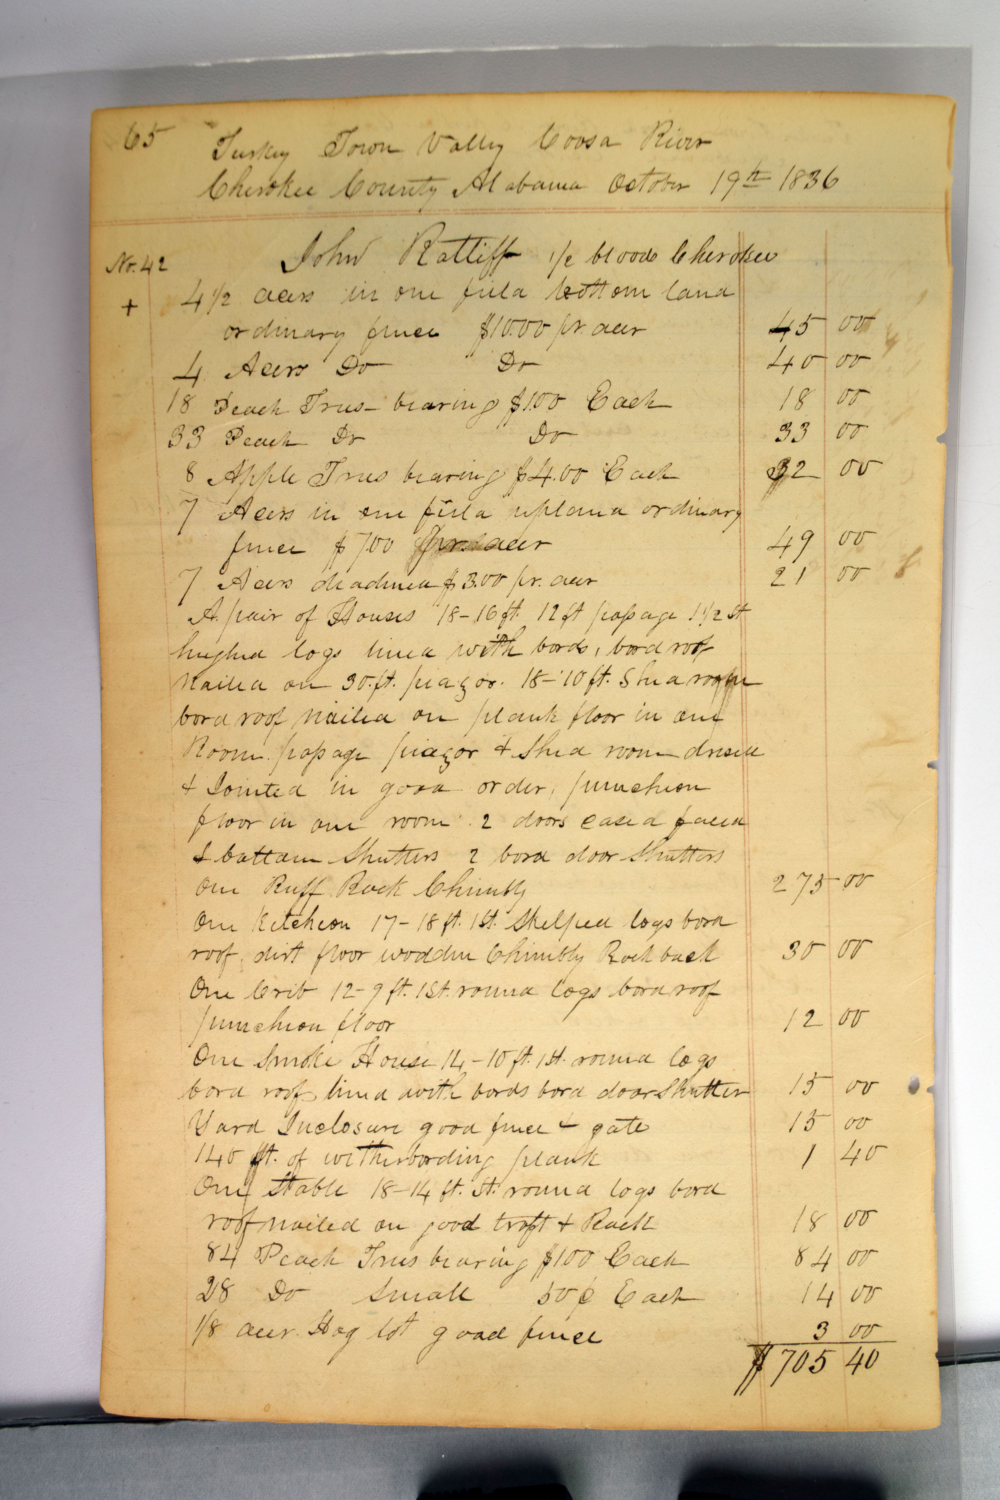 65
Turkey Town Vally Coosa River
Cherokee County Alabama October 19th 1836
No. 42
John Ratliff 1/2 blood Cherokee
+ 4 1/2 acers in one field bottom land
ordinary fence $10.00 pr acer 45 00
4 Acers Do Do 40 00
18 Peach Trees bearing $1.00 Each 18 00
33 Peach Do Do 33 00
8 Apple Trees bearing $4.00 Each 32 00
7 Acers in one field upland ordinary
fence $7.00 pr. acer 49 00
7 Acers deadned $3.00 pr. acer 21 00
A pair of Houses 18-16 ft. 12 ft passage 1 1/2 st
hughed logs lined with bords, bord roof
nailed on 30. ft. piazor. 18-10 ft. Shed room
bord roof nailed on plank floor in one
Room. passage piazor & Shed room dress
& Jointed in good order, puncheon
floor in one room 2 doors cased faced
& battam Shutters 2 bord door Shutters
One Ruff Rock Chimbly 275 00
One Kitcheon 17-18 ft. 1 St. Skelped logs bord
roof, dirt floor wooden Chimbly Rock back 30 00
One Crib 12-9 ft. 1 St. round logs bord roof
puncheon floor 12 00
One Smoke House 14-10 ft. 1 st. round logs
bord roof lined with bords bord door Shutter 15 00
Yard Inclosure good fence & gate 15 00
140 ft. of wetherbording plank 1 40
One Stable 18-14 ft. st. round logs bord
roof nailed on good troft & Rack 18 00
84 Peach Trees bearing $1.00 Each 84 00
28 Do Small 50¢ Each 14 00
1/8 acer. Hog lot good fence 3 00
$705 40